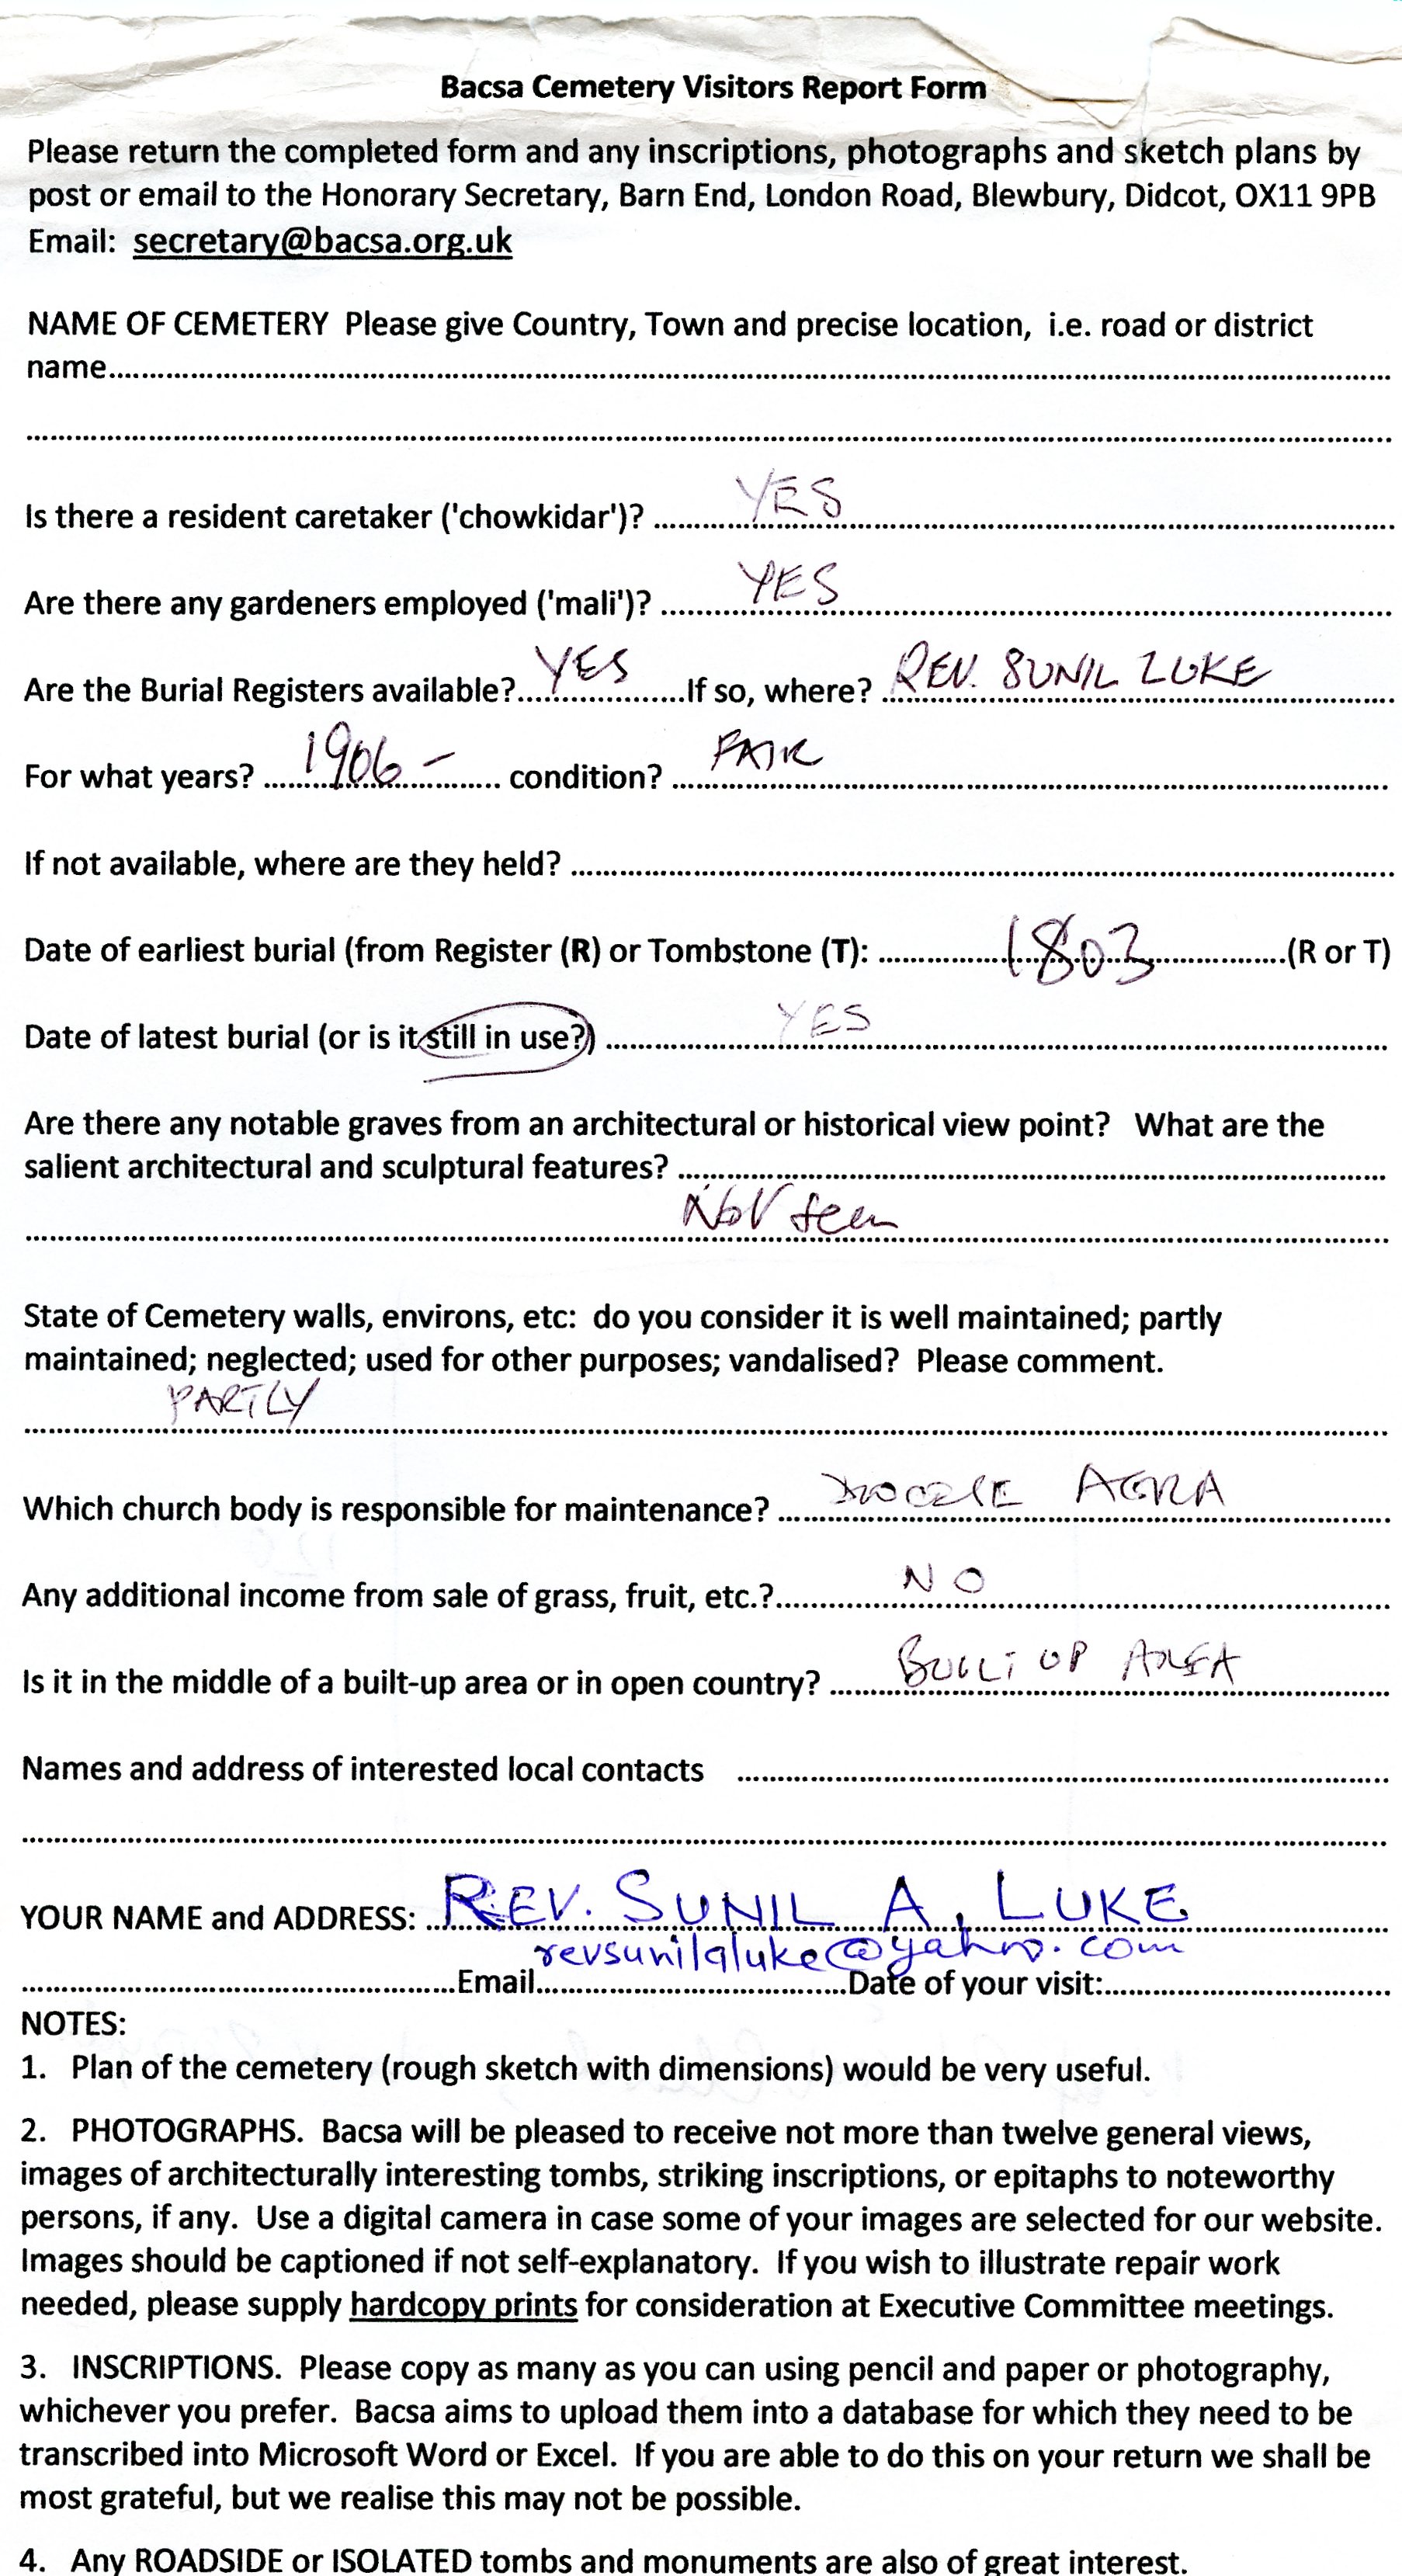 Bacsa Cemetery Visitors Report Form
Please return the completed form and any inscriptions, photographs and sketch plans by
post or email to the Honorary Secretary, Barn End, London Road, Blewbury, Didcot, OX11 9PB
Email: secretary@bacsa.org.uk
NAME OF CEMETERY Please give Country, Town and precise location, i.e. road or district
name
Is there a resident caretaker ('chowkidar')? YES
Are there any gardeners employed ('mali')? YES
Are the Burial Registers available? YES If so, where? REV. SUNIL LUKE
For what years? 1906 – condition? FAIR
If not available, where are they held?
Date of earliest burial (from Register (R) or Tombstone (T): 1803 (R or T)
Date of latest burial (or is it still in use?) YES
Are there any notable graves from an architectural or historical view point? What are the
salient architectural and sculptural features?
Not seen
State of Cemetery walls, environs, etc: do you consider it is well maintained; partly
maintained; neglected; used for other purposes; vandalised? Please comment.
PARTLY
Which church body is responsible for maintenance? DIOCESE AGRA
Any additional income from sale of grass, fruit, etc.? NO
Is it in the middle of a built-up area or in open country? BUILT UP AREA
Names and address of interested local contacts
YOUR NAME and ADDRESS: REV. SUNIL A. LUKE
revsunilaluke@yahoo.com
Email Date of your visit:
NOTES:
1. Plan of the cemetery (rough sketch with dimensions) would be very useful.
2. PHOTOGRAPHS. Bacsa will be pleased to receive not more than twelve general views,
images of architecturally interesting tombs, striking inscriptions, or epitaphs to noteworthy
persons, if any. Use a digital camera in case some of your images are selected for our website.
Images should be captioned if not self-explanatory. If you wish to illustrate repair work
needed, please supply hardcopy prints for consideration at Executive Committee meetings.
3. INSCRIPTIONS. Please copy as many as you can using pencil and paper or photography,
whichever you prefer. Bacsa aims to upload them into a database for which they need to be
transcribed into Microsoft Word or Excel. If you are able to do this on your return we shall be
most grateful, but we realise this may not be possible.
4. Any ROADSIDE or ISOLATED tombs and monuments are also of great interest.